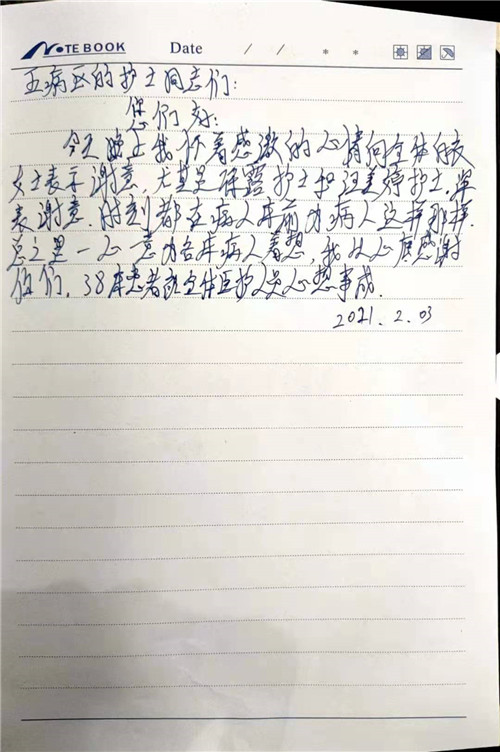 NOTEBOOK Date / / * *
五病区的护士同志们:
您们好:
今天晚上我怀着感激的心情向全体白衣
女士表示谢意,尤其是 露护士和汪美婷护士,
表谢意.时刻都在病人床前为病人这样那样.
总之是一心一意为各床病人着想,我从心底感谢
你们.38床患者祝全体医护人员心想事成.
2021.2.03